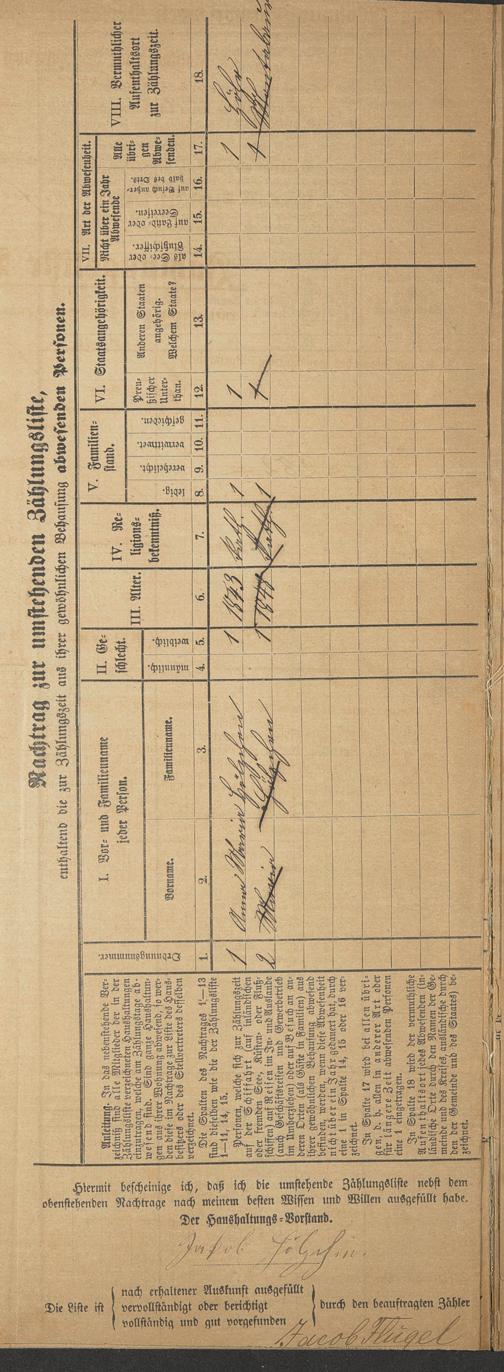 Nachtrag zur umstehenden Zählungsliste,
enthaltend die zur Zählungszeit aus ihrer gewöhnlichen Behausung abwesenden Personen.
Anleitung. In das nebenstehende Ver-
zeichniß sind alle Mitglieder der in der
Zählungsliste verzeichneten Haushaltungen
einzutragen, welche am Zählungstage ab-
wesend sind. Sind ganze Haushaltun-
gen aus ihrer Wohnung abwesend, so wer-
den diese im Nachtrage zur Liste des Haus-
besitzers oder des Stellvertreters desselben
verzeichnet.
Die Spalten des Nachtrages 1–13
sind dieselben wie die der Zählungsliste
1–11, 14, 15.
Personen, welche sich zur Zählungszeit
auf der Schiffahrt (auf inländischen
oder fremden See-, Küsten- oder Fluß-
schiffen) auf Reisen im In- und Auslande
(auch Geschäftsreisen und Gewerbebetrieb
im Umherziehen) oder auf Besuch an an-
deren Orten (als Gäste in Familien) aus
ihrer gewöhnlichen Behausung abwesend
befinden, werden, wenn diese Abwesenheit
nicht über ein Jahr gedauert hat, durch
eine 1 in Spalte 14, 15 oder 16 ver-
zeichnet.
In Spalte 17 wird bei allen übri-
gen, d. h. allen in anderer Art oder
für längere Zeit abwesenden Personen
eine 1 eingetragen.
In Spalte 18 wird der vermuthliche
Aufenthaltsort jedes Abwesenden (in-
ländische Orte durch den Namen der Ge-
meinde und des Kreises, ausländische durch
den der Gemeinde und des Staates) be-
zeichnet.
Ordnungsnummer.
I. Vor- und Familienname
jeder Person.
Vorname.
Familienname.
II. Ge-
schlecht.
männlich.
weiblich.
III. Alter.
IV. Re-
ligions-
bekenntniß.
V. Familien-
stand.
ledig.
verehelicht.
verwittwet.
geschieden.
VI. Staatsangehörigkeit.
Preu-
ßischer
Unter-
than.
Anderen Staaten
angehörig.
Welchem Staate?
VII. Art der Abwesenheit.
Nicht über ein Jahr
Abwesende
als See- oder
Flußschiffer.
auf Land- oder
Seereisen.
auf Besuch außer-
halb des Orts.
Alle
übri-
gen
Abwe-
senden.
VIII. Vermuthlicher
Aufenthaltsort
zur Zählungszeit.
1. 2. 3. 4. 5. 6. 7. 8. 9. 10. 11. 12. 13. 14. 15. 16. 17. 18.
1 Anna Maria 1 1843 kath. 1 1 1
2 Maria 1 kath. 1 1 1
Hiermit bescheinige ich, daß ich die umstehende Zählungsliste nebst dem
obenstehenden Nachtrage nach meinem besten Wissen und Willen ausgefüllt habe.
Der Haushaltungs-Vorstand.
Jakob
Die Liste ist
nach erhaltener Auskunft ausgefüllt
vervollständigt oder berichtigt
vollständig und gut vorgefunden
durch den beauftragten Zähler
Jacob Flügel